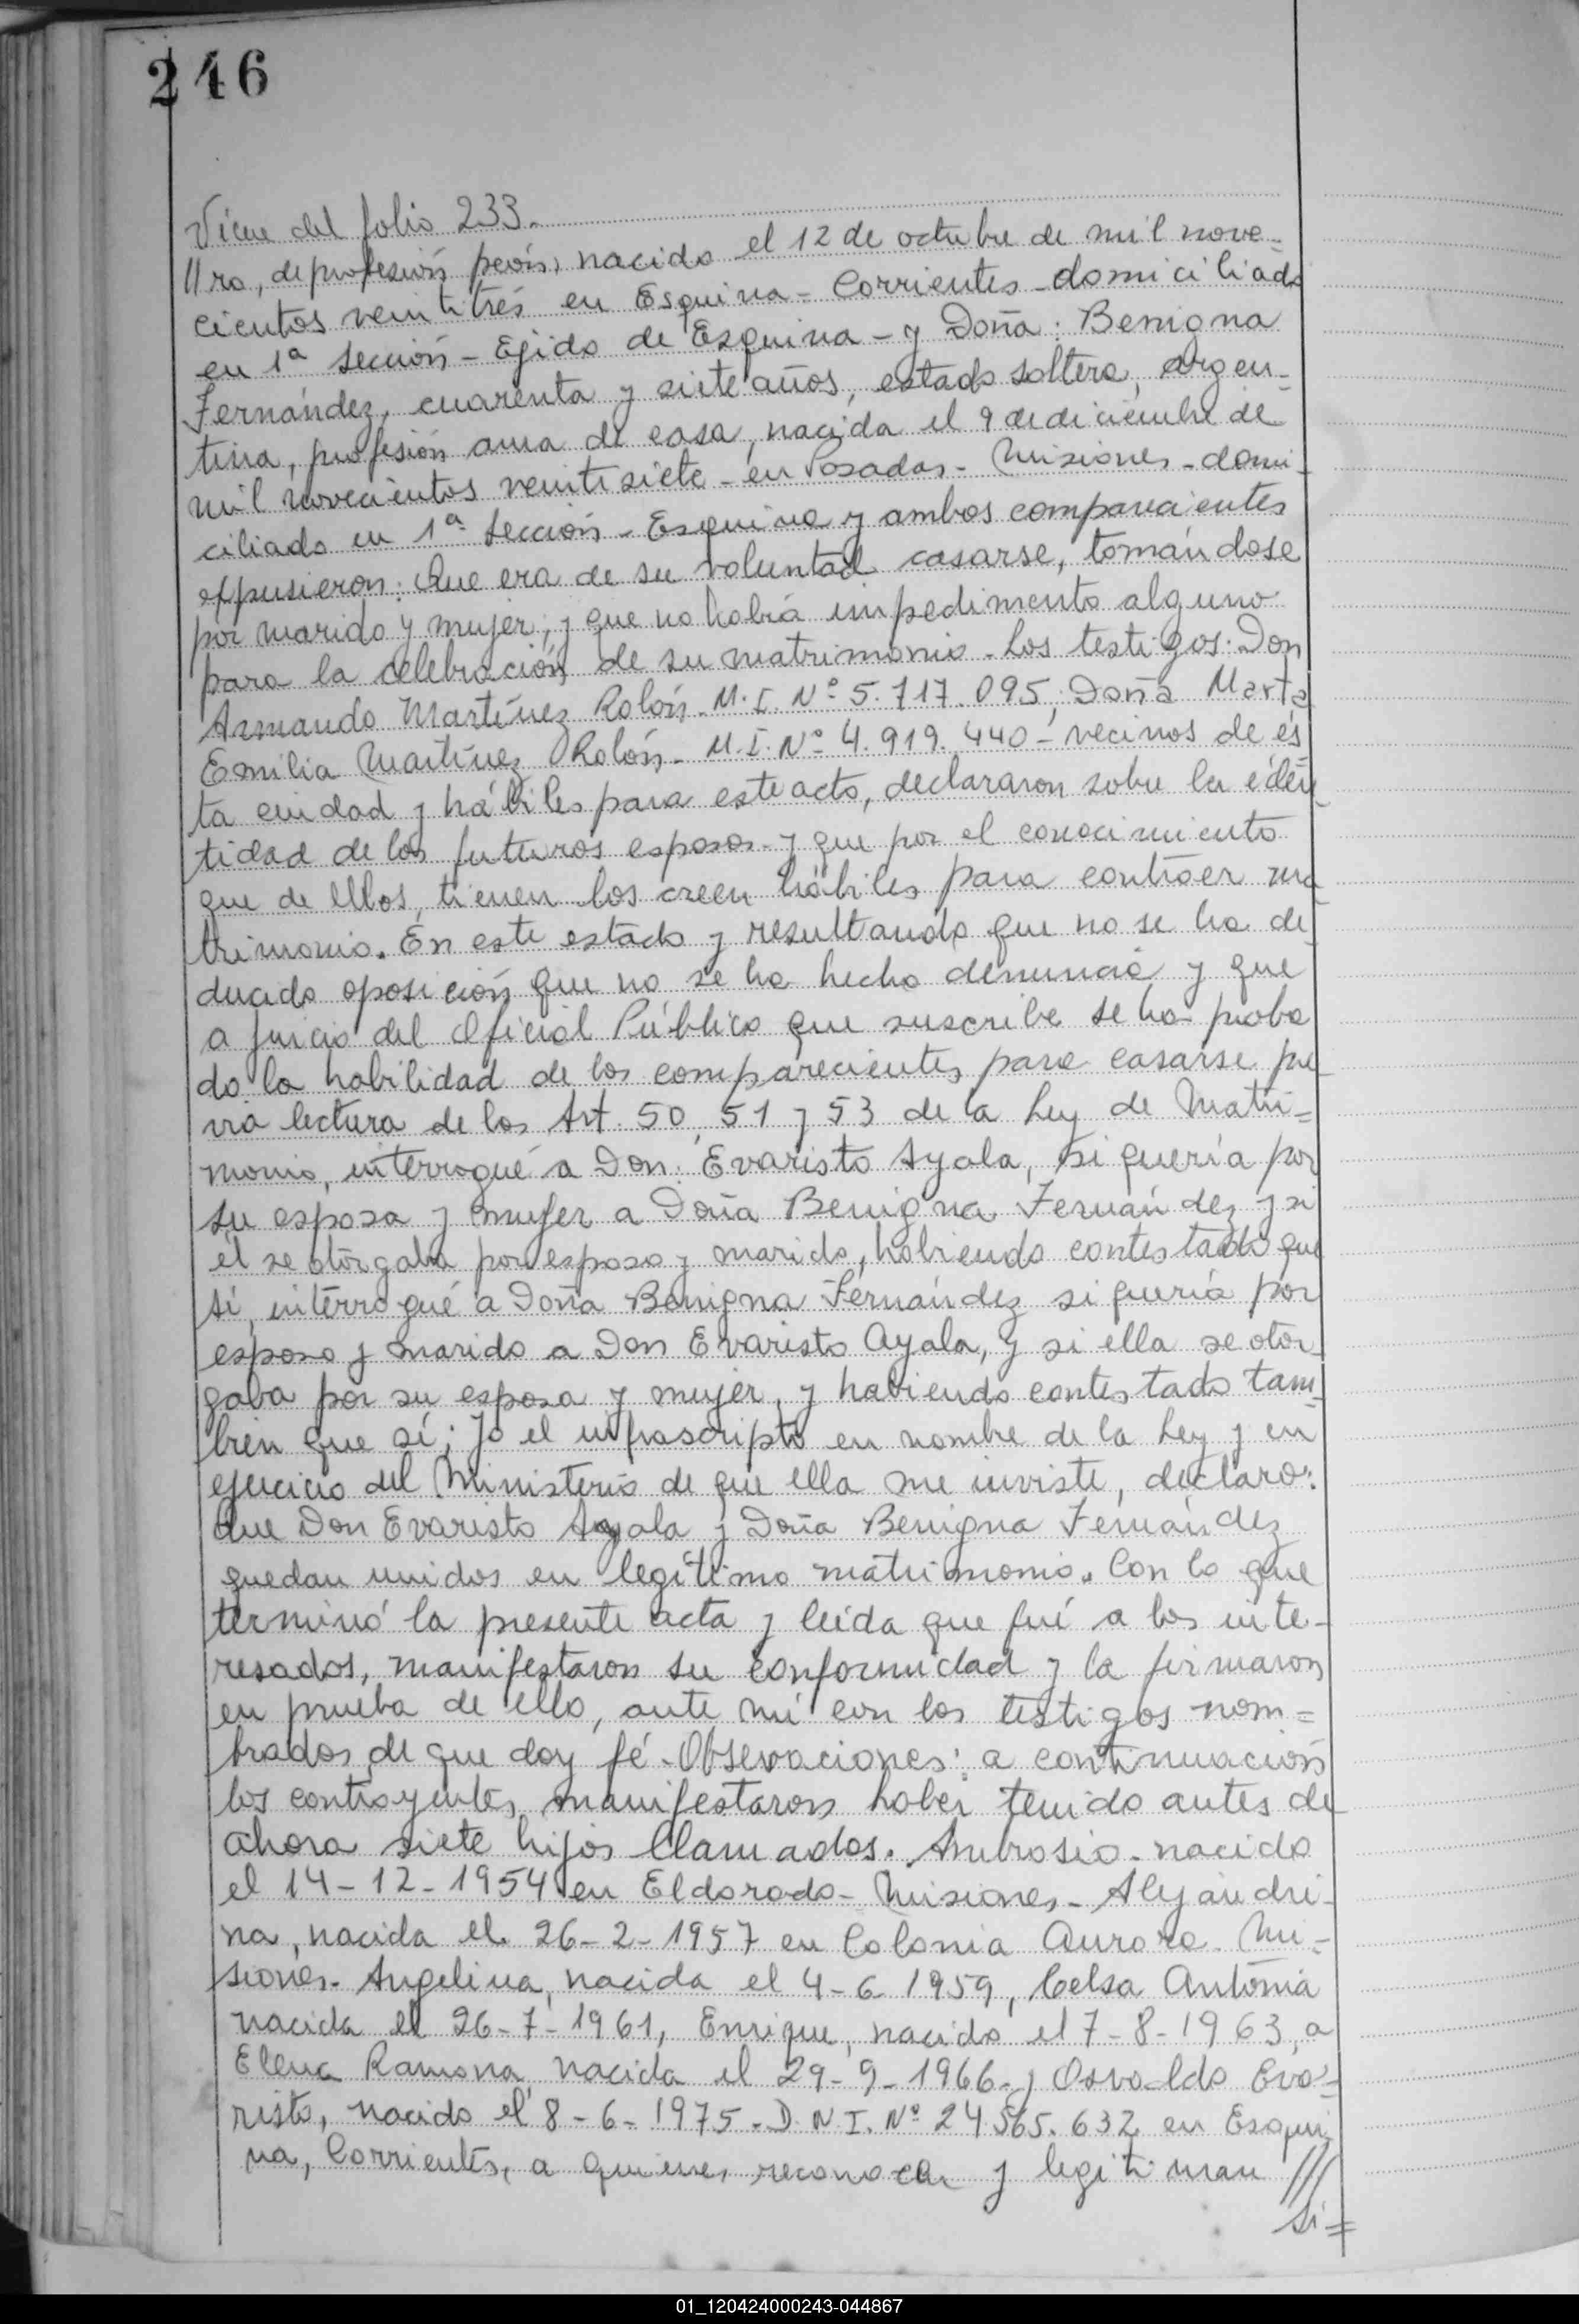 246
Viene del folio 233.
//ro, de profesión peón, nacido el 12 de octubre de mil nove=
cientos veintitrés en Esquina - Corrientes - domiciliado
en 1ª sección - Ejido de Esquina - y Doña: Benigna
Fernández, cuarenta y siete años, estado soltera, argen-
tina, profesión ama de casa, nacida el 9 de diciembre de
mil novecientos veintisiete - en Posadas - Misiones - domi-
ciliado en 1ª Sección - Esquina y ambos comparecientes
expusieron: Que era de su voluntad casarse, tomándose
por marido y mujer, y que no había impedimento alguno
para la celebración de su matrimonio - Los testigos: Don
Armando Martínez Rolón - M.I. Nº 5.717.095; Doña Marta
Emilia Martínez Rolón - M.I. Nº 4.919.440 - vecinos de és
ta ciudad y hábiles para este acto, declararon sobre la iden
tidad de los futuros esposos - y que por el conocimiento
que de ellos, tienen los creen hábiles para contraer ma
trimonio. En este estado y resultando que no se ha de
ducido oposición que no se ha hecho denuncia y que
a juicio del Oficial Público que suscribe se ha proba
do la habilidad de los comparecientes para casarse pre
via lectura de los Art. 50, 51 y 53 de la Ley de Matri=
monio, interrogué a Don: Evaristo Ayala, si quería por
su esposa y mujer a Doña Benigna Fernández y si
él se otorgaba por esposo y marido, habiendo contestado que
sí, interrogué a Doña Benigna Fernández si quería por
esposo y marido a Don Evaristo Ayala, y si ella se otor-
gaba por su esposa y mujer, y habiendo contestado tam-
bien que sí; Yo el infrascripto en nombre de la Ley y en
ejercicio del Ministerio de que ella me inviste, declaro:
Que Don Evaristo Ayala y Doña Benigna Fernández
quedan unidos en legítimo matrimonio. Con lo que
terminó la presente acta y leída que fué a los inte-
resados, manifestaron su conformidad y la firmaron
en prueba de ello, ante mí con los testigos nom=
brados de que doy fé - Observaciones: a continuación
los contrayentes, manifestaron haber tenido antes de
ahora siete hijos llamados. Ambrosio - nacido
el 14-12-1954 en Eldorado - Misiones - Alejandri-
na, nacida el 26-2-1957 en Colonia Aurora - Mi-
siones - Angelina, nacida el 4-6-1959, Celsa Antonia
nacida el 26-7-1961, Enrique, nacido el 7-8-1963, a
Elena Ramona, nacida el 29-9-1966 - y Osvaldo Eva-
risto, nacido el 8-6-1975 - D.N.I. Nº 24565.632 en Esqui
na, Corrientes, a quienes reconocen y legitiman ///
si=
01_120424000243-044867